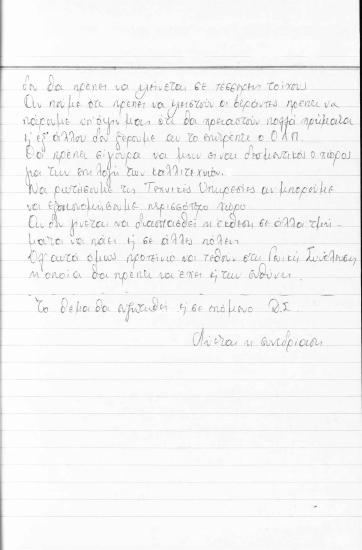 δεν θα πρέπει να κλείνεται σε τέσσερεις τοίχους
Αν πούμε ότι πρέπει να κλειστούν οι βεράντες πρέπει να
πάρουμε υπ' όψη μας ότι θα χρειαστούν πολλά χρήματα
ή εξ' άλλου δεν ξέρουμε αν το επιτρέπει ο Ο.Λ.Π.
Θα πρέπει σίγουρα να μην είναι δεσμευτικός ο χώρος
για την επιλογή των καλλιτεχνών.
Να ρωτήσουμε τις Τεχνικές Υπηρεσίες αν μπορούμε
να εξοικονομήσουμε περισσότερο χώρο
Αν δεν γίνεται να διασπασθεί η έκθεση σε άλλα τμή-
ματα να πάει ή σε άλλες πόλεις
Όλ' αυτά όμως προτείνω να τεθούν στη Γενική Συνέλευση
η οποία θα πρέπει να έχει ή την ευθύνη.
Το θέμα θα συζητηθεί ή σε επόμενο Δ.Σ.
Λύεται η συνεδρίαση